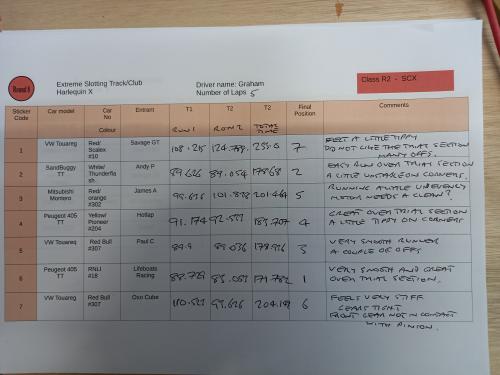 Round 6
Extreme Slotting Track/Club
Harlequin X
Driver name: Graham
Number of Laps 5
Class R2 - SCX
Sticker Code
Car model
Car No
Colour
Entrant
T1
T2
T2
Final Position
Comments
RUN 1
RUN 2
TOTAL TIME
1
VW Touareg
Red/ Scalex #10
Savage GT
7
FELT A LITTLE TIPPY
DO NOT LIKE THE TRIAL SECTION
MANY OFFS.
2
SandBuggy TT
White/ Thunderflash
Andy P
89.626
89.054
2
EASY RUN OVER TRIAL SECTION
A LITTLE UNSTABLE ON CORNERS.
3
Mitsubishi Montero
Red/ orange #302
James A
99.626
101.838
201.464
5
RUNNING A LITTLE UNEVENLY
MOTOR NEEDS A CLEAN?
4
Peugeot 405 TT
Yellow/ Pioneer #204
Hotlap
91.174
4
GREAT OVER TRIAL SECTION
A LITTLE TIPPY ON CORNERS
5
VW Touareg
Red Bull #307
Paul C
89.9
89.036
3
VERY SMOOTH RUNNER
A COUPLE OF OFFS.
6
Peugeot 405 TT
RNLI #18
Lifeboats Racing
1
VERY SMOOTH AND GREAT
OVER TRIAL SECTION.
7
VW Touareg
Red Bull #307
Oxo Cube
6
FEELS VERY STIFF
GEARS TIGHT
FRONT GEAR NOT IN CONTACT
WITH PINION.